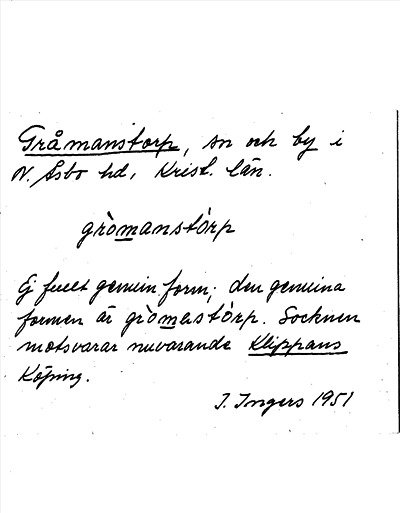 Gråmanstorp, sn och by i
N. Åsbo hd, Krist. län.
gròmanstórp
Ej fullt genuin form; den genuina
formen är gròmastórp. Socknen
motsvarar nuvarande Klippans
Köping.
I. Ingers 1951